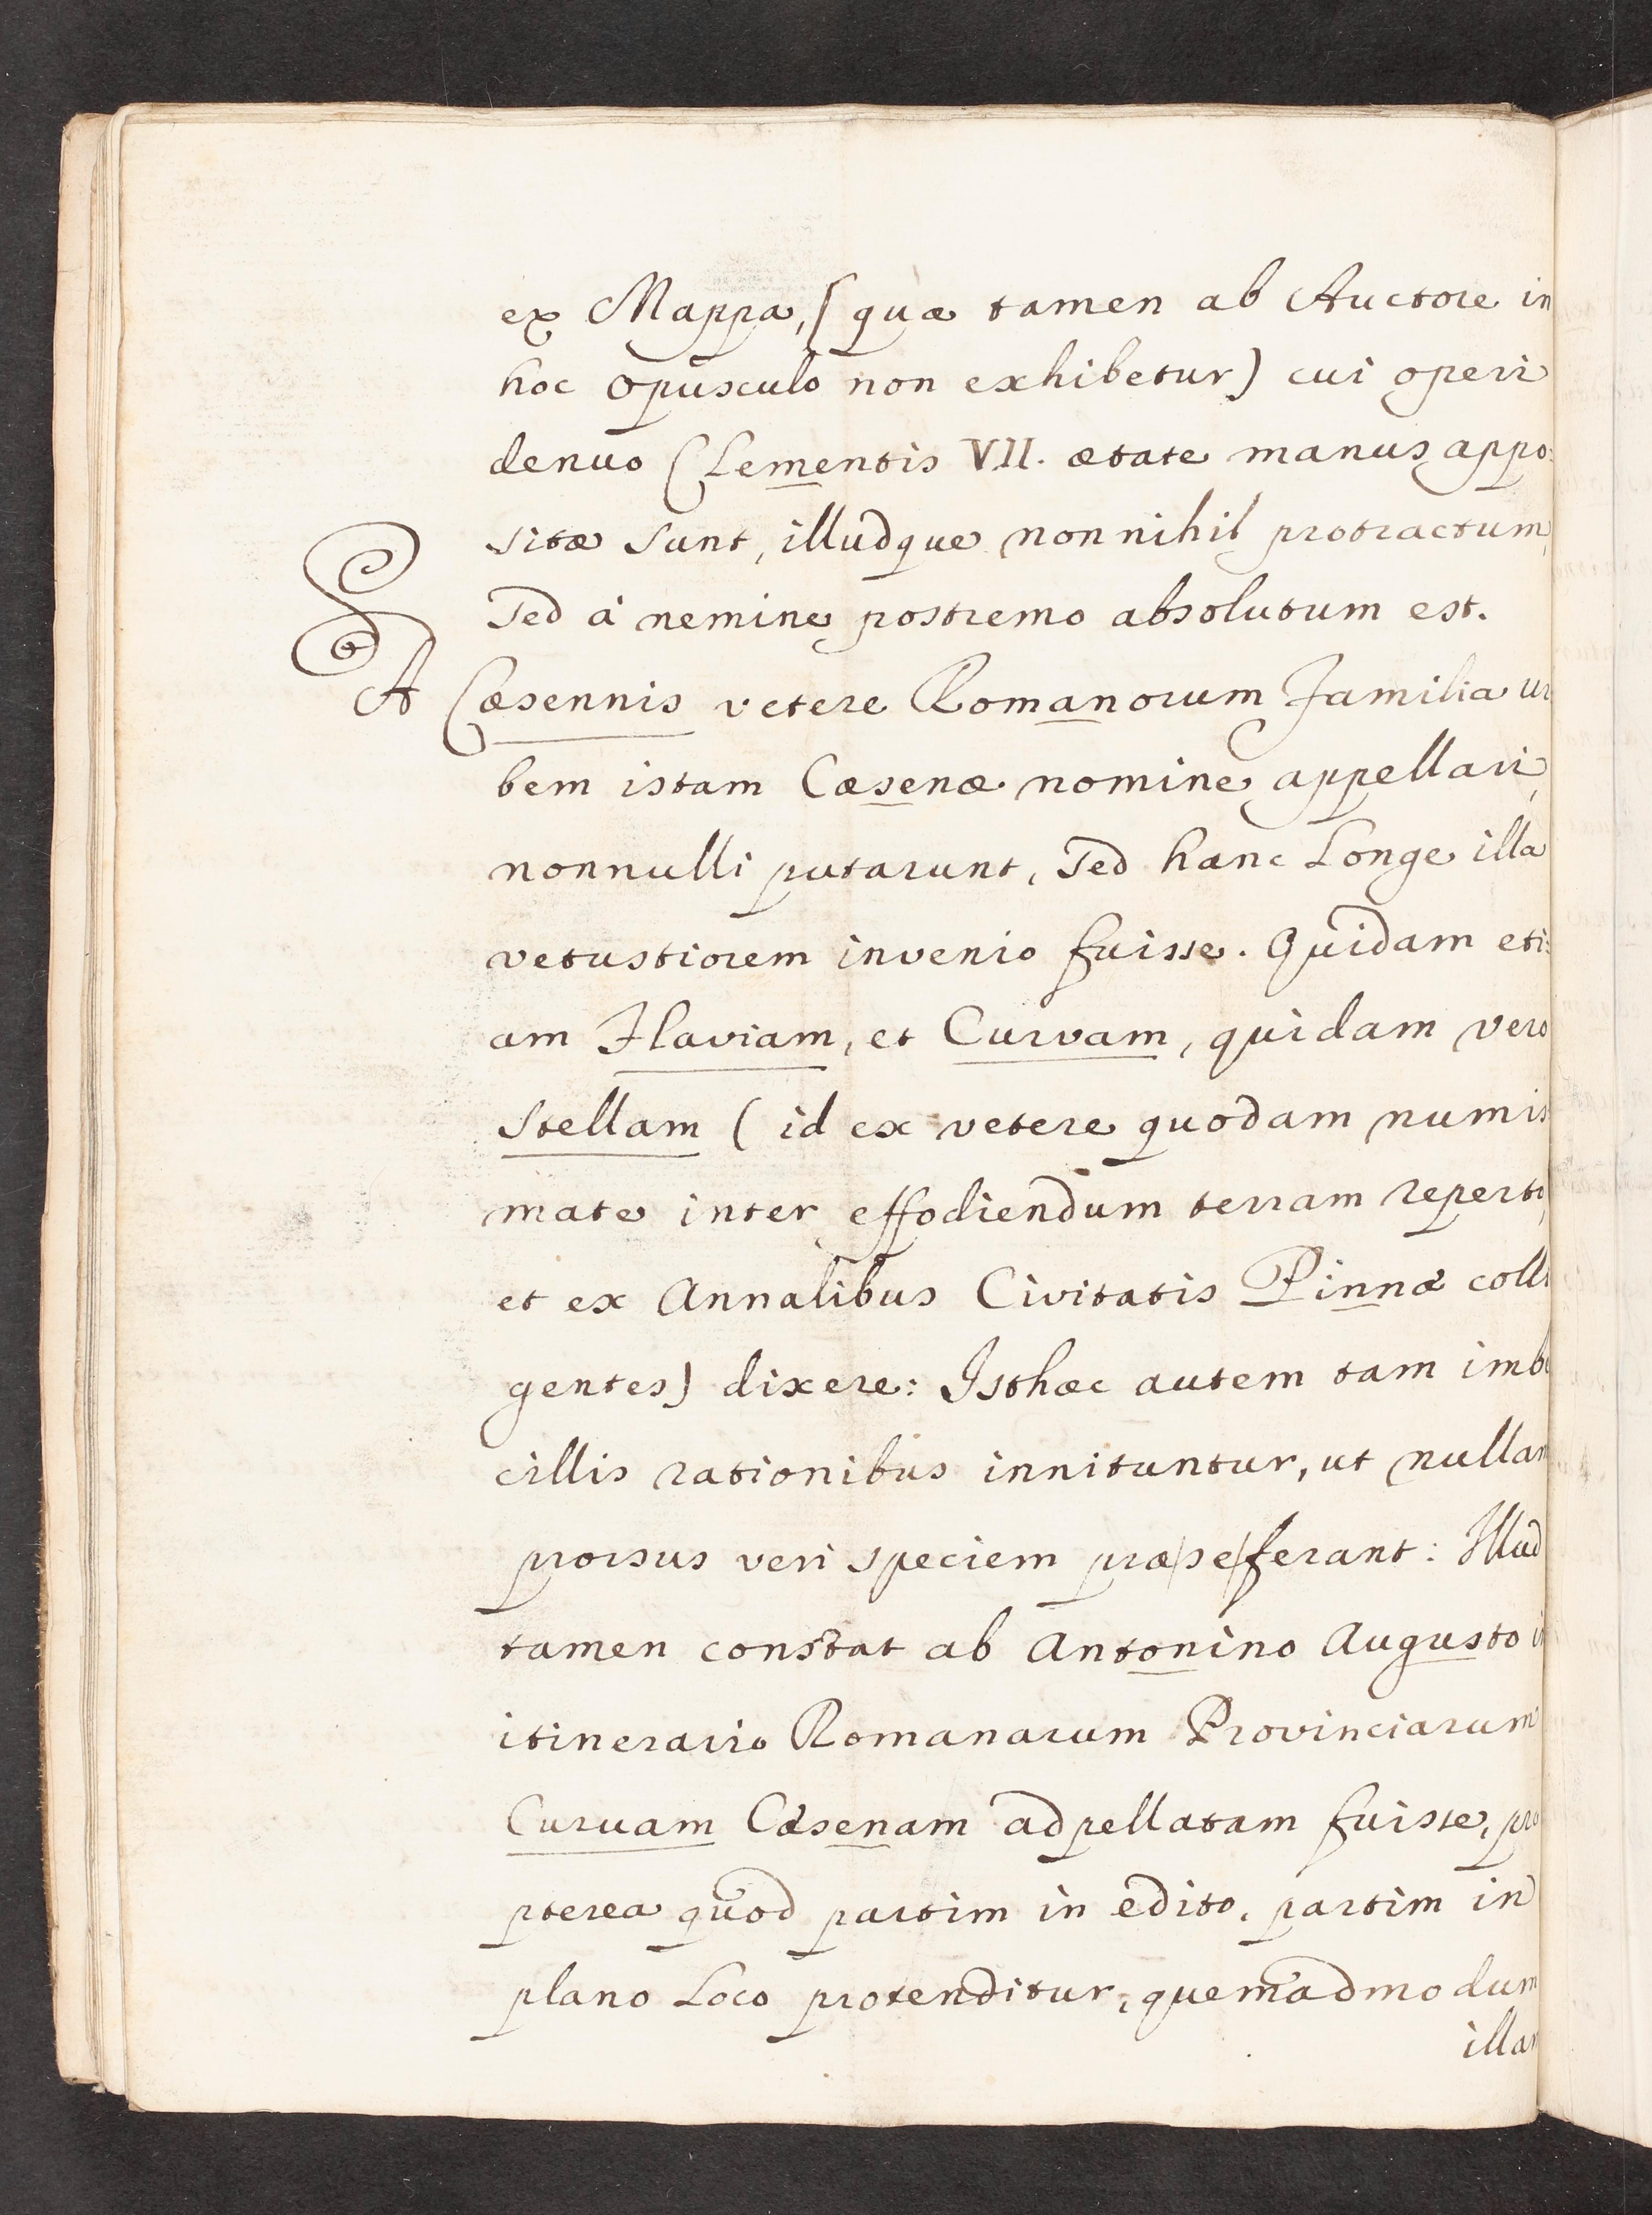 ex Mappa, (quæ tamen ab Auctore in
hoc opusculo non exhibetur) cui operi
denuo Clementis VII. ætate manus appo:
sitæ sunt, illudque nonnihil protractum,
sed à nemine postremo absolutum est.
A Cæsennis vetere Romanorum Familia ur
bem istam Cæsenæ nomine appellari,
nonnulli putarunt, sed hanc longe illa
vetustiorem invenio fuisse. Quidam eti:
am Flaviam, et Curvam, quidam vero
Stellam (id ex vetere quodam numis
mate inter effodiendum terram reperto,
et ex Annalibus Civitatis Pinnæ colli
gentes) dixere: Isthæc autem tam imbe
cillis rationibus innituntur, ut nullam
prorsus veri speciem præ|se|ferant: Illud
tamen constat ab Antonino Augusto in
itinerario Romanarum Provinciarum
Curuam Cæsenam adpellatam fuisse, pro
pterea quod partim in edito, partim in
plano loco protenditur, quemadmodum
illam